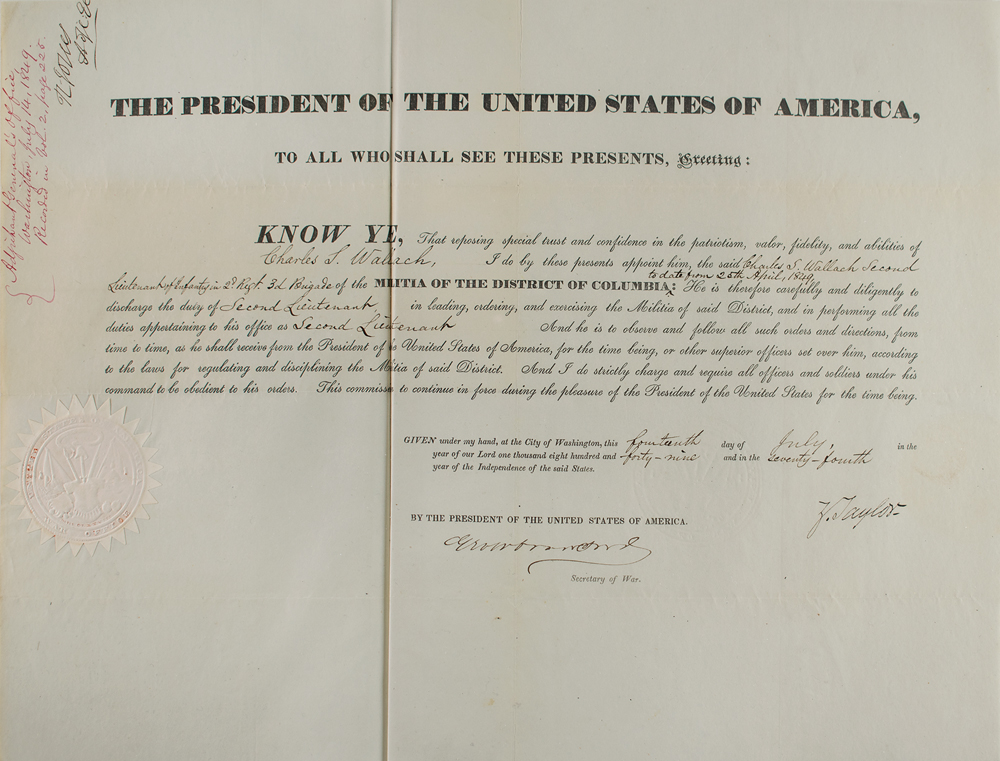 Adjutant General's Office,
Washington, July 14, 1849.
Recorded in Vol. 2, page 225.
THE PRESIDENT OF THE UNITED STATES OF AMERICA,
TO ALL WHO SHALL SEE THESE PRESENTS, Greeting:
KNOW YE, That reposing special trust and confidence in the patriotism, valor, fidelity, and abilities of
Charles S. Wallach, I do by these presents appoint him, the said Charles S. Wallach Second
to date from 25th April, 1849
Lieutenant of Infantry in 2d Regt. 3d Brigade of the MILITIA OF THE DISTRICT OF COLUMBIA: He is therefore carefully and diligently to
discharge the duty of Second Lieutenant in leading, ordering, and exercising the Militia of said District, and in performing all the
duties appertaining to his office as Second Lieutenant And he is to observe and follow all such orders and directions, from
time to time, as he shall receive from the President of e United States of America, for the time being, or other superior officers set over him, according
to the laws for regulating and disciplining the Mitia of said District. And I do strictly charge and require all officers and soldiers under his
command to be obedient to his orders. This commissio to continue in force during the pleasure of the President of the United States for the time being.
GIVEN under my hand, at the City of Washington, this fourteenth day of July, in the
year of our Lord one thousand eight hundred and forty-nine and in the seventy-fourth
year of the Independence of the said States.
Z. Taylor
BY THE PRESIDENT OF THE UNITED STATES OF AMERICA.
Secretary of War.